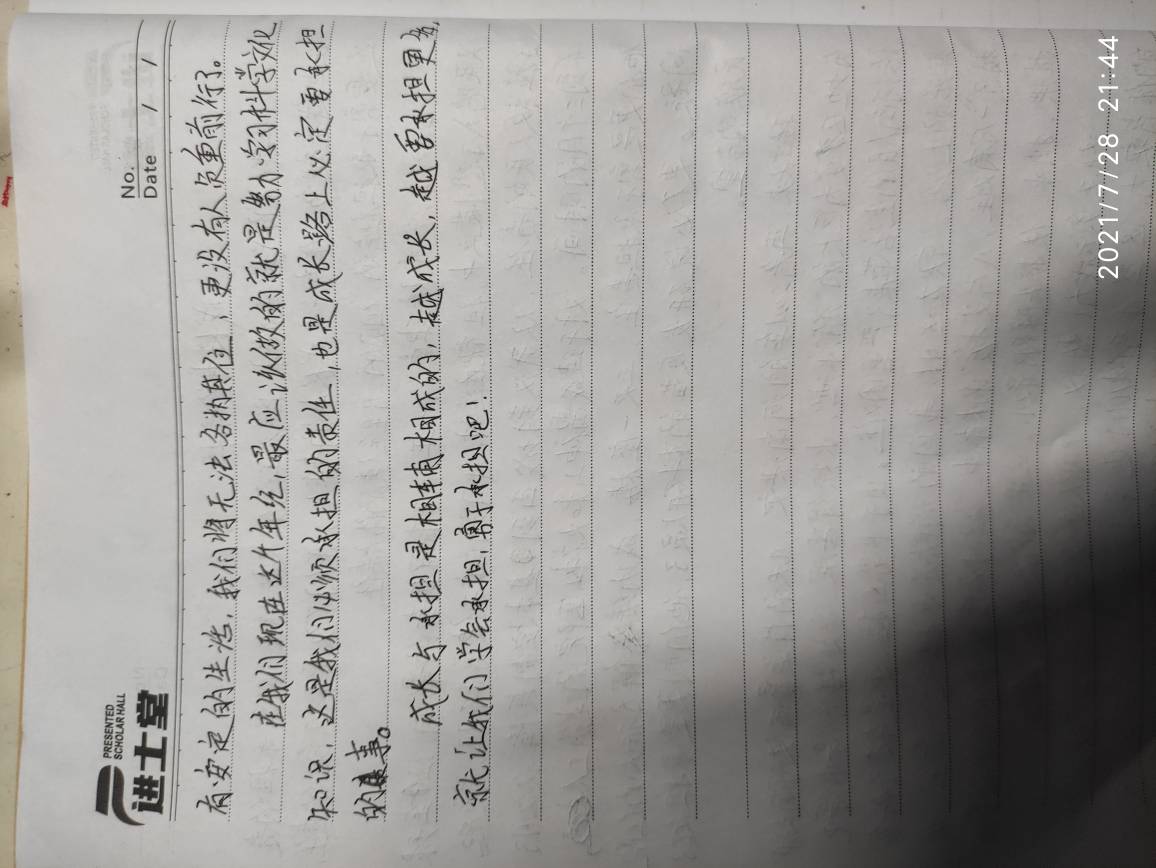 进士堂
PRESENTED
SCHOLAR HALL
No.
Date / /
有安定的生活，我们将无法各执其位，更没有人负重前行了。
在我们现在这个年纪，最应该做的就是努力学习科学文化
知识，这是我们必须承担的责任，也是成长路上必定要承担
的事。
成长与承担是相辅相成的，越成长，越要承担更多，
就让我们学会承担，勇于承担吧！
2021/7/28 21:44